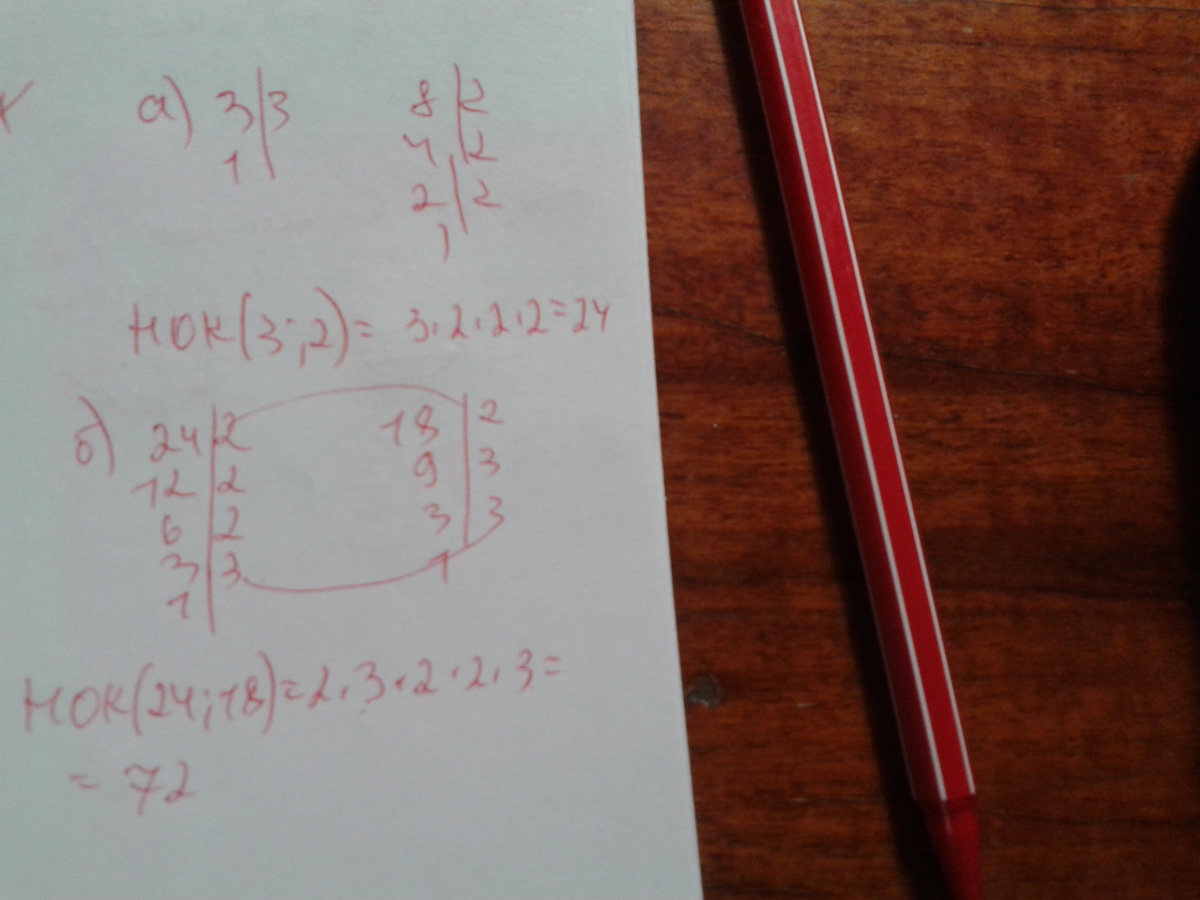 а) 3|3 8|2
1 4|2
2|2
1
НОК(3;2)= 3·2·2·2=24
б) 24|2 18|2
12|2 9|3
6|2 3|3
3|3 1
1
НОК(24;18)=2·3·2·2·3=
= 72